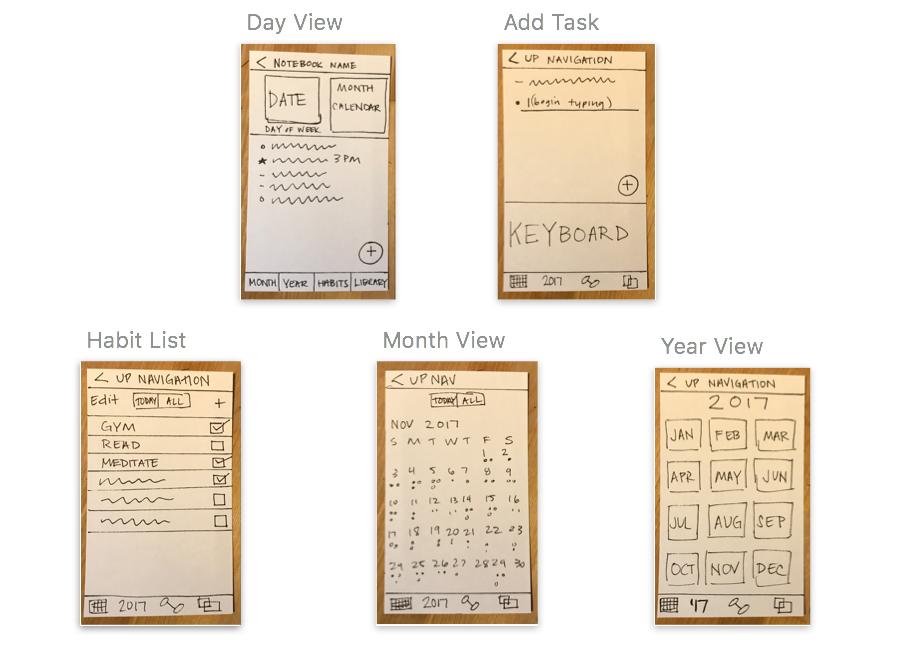 Day View
< NOTEBOOK NAME
DATE
MONTH
CALENDAR
DAY OF WEEK
3 PM
+
MONTH YEAR HABITS LIBRARY
Add Task
< UP NAVIGATION
1(begin typing)
+
KEYBOARD
2017
Habit List
< UP NAVIGATION
Edit TODAY ALL +
GYM
READ
MEDITATE
2017
Month View
< UP NAV
TODAY ALL
NOV 2017
S M T W T F S
1 2
3 4 5 6 7 8 9
10 11 12 13 14 15 16
17 18 19 20 21 22 23
24 25 26 27 28 29 30
2017
Year View
< UP NAVIGATION
2017
JAN FEB MAR
APR MAY JUN
JUL AUG SEP
OCT NOV DEC
'17